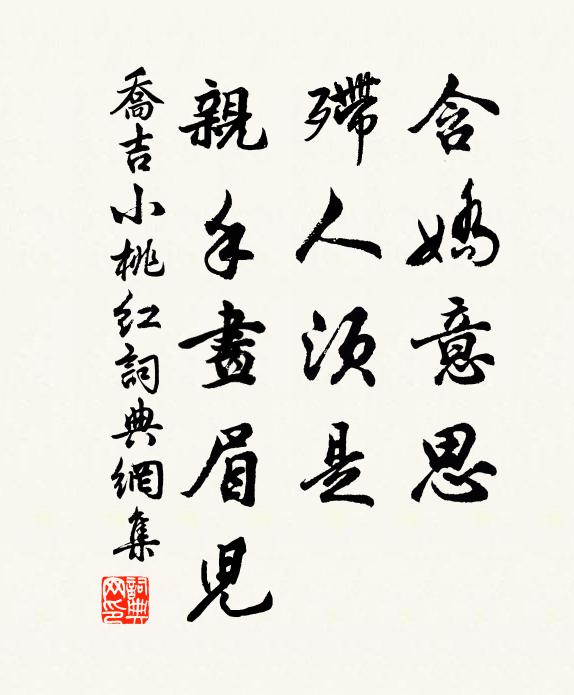 含嬌意思
殢人須是
親手畫眉兒
喬吉小桃紅詞典網集
詞典网印